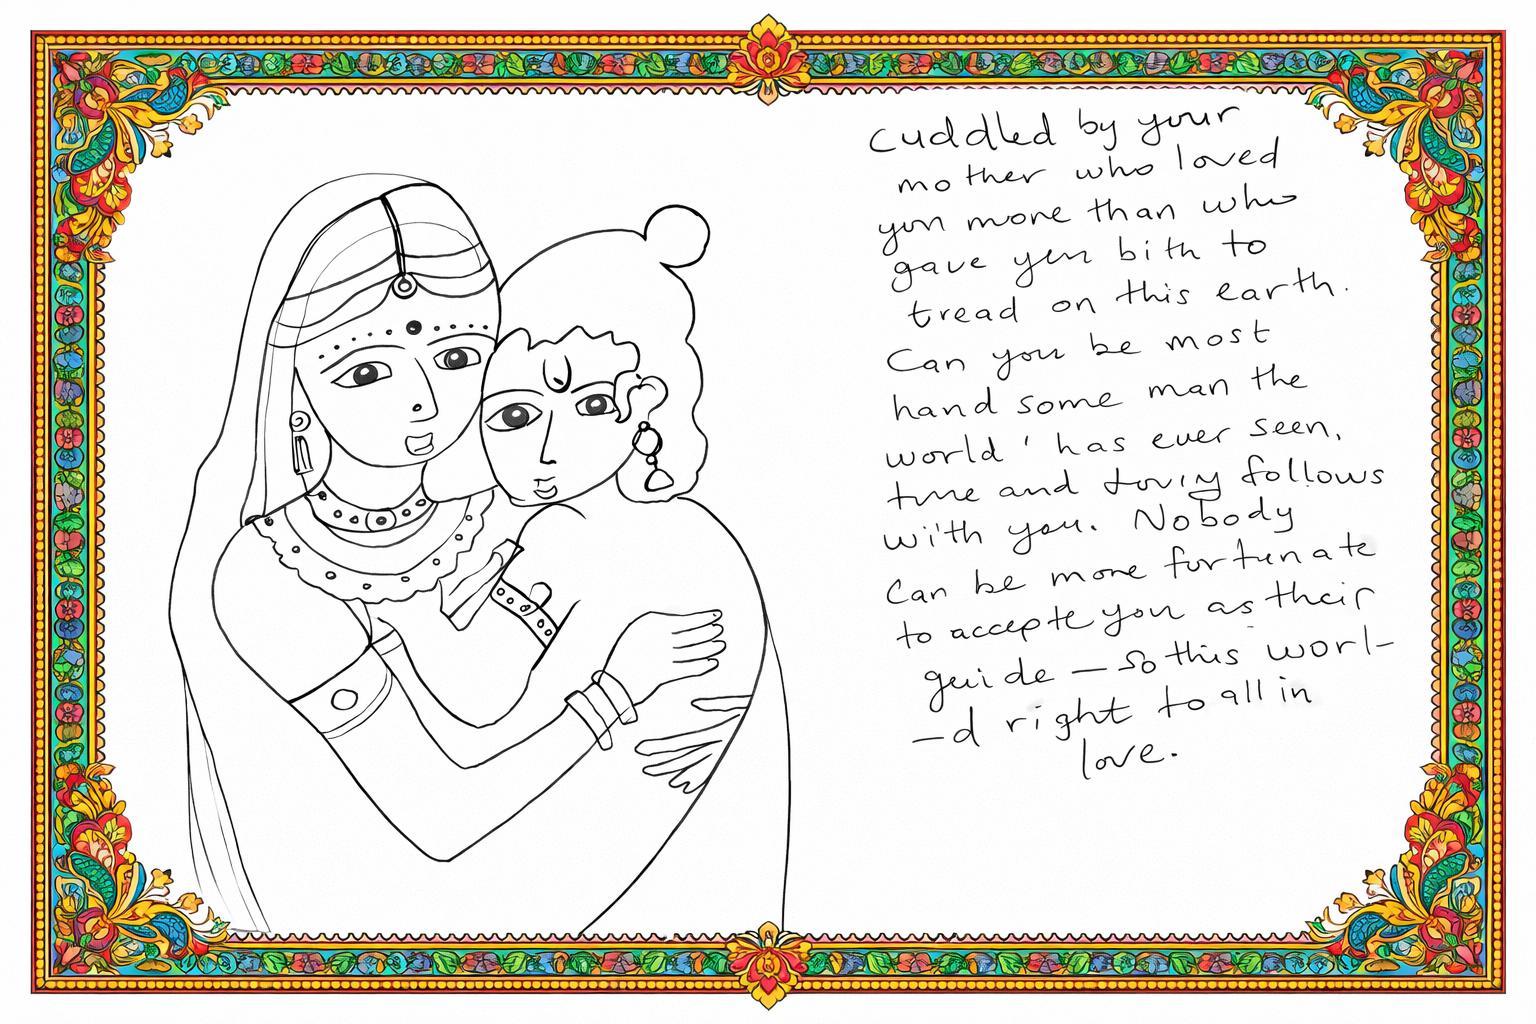 Cuddled by your
mother who loved
you more than who
gave you bith to
tread on this earth.
Can you be most
hand some man the
world ' has ever seen,
time and foving follows
with you. Nobody
Can be more fortunate
to accepte you as their
guide — So this worl-
-d right to all in
love.